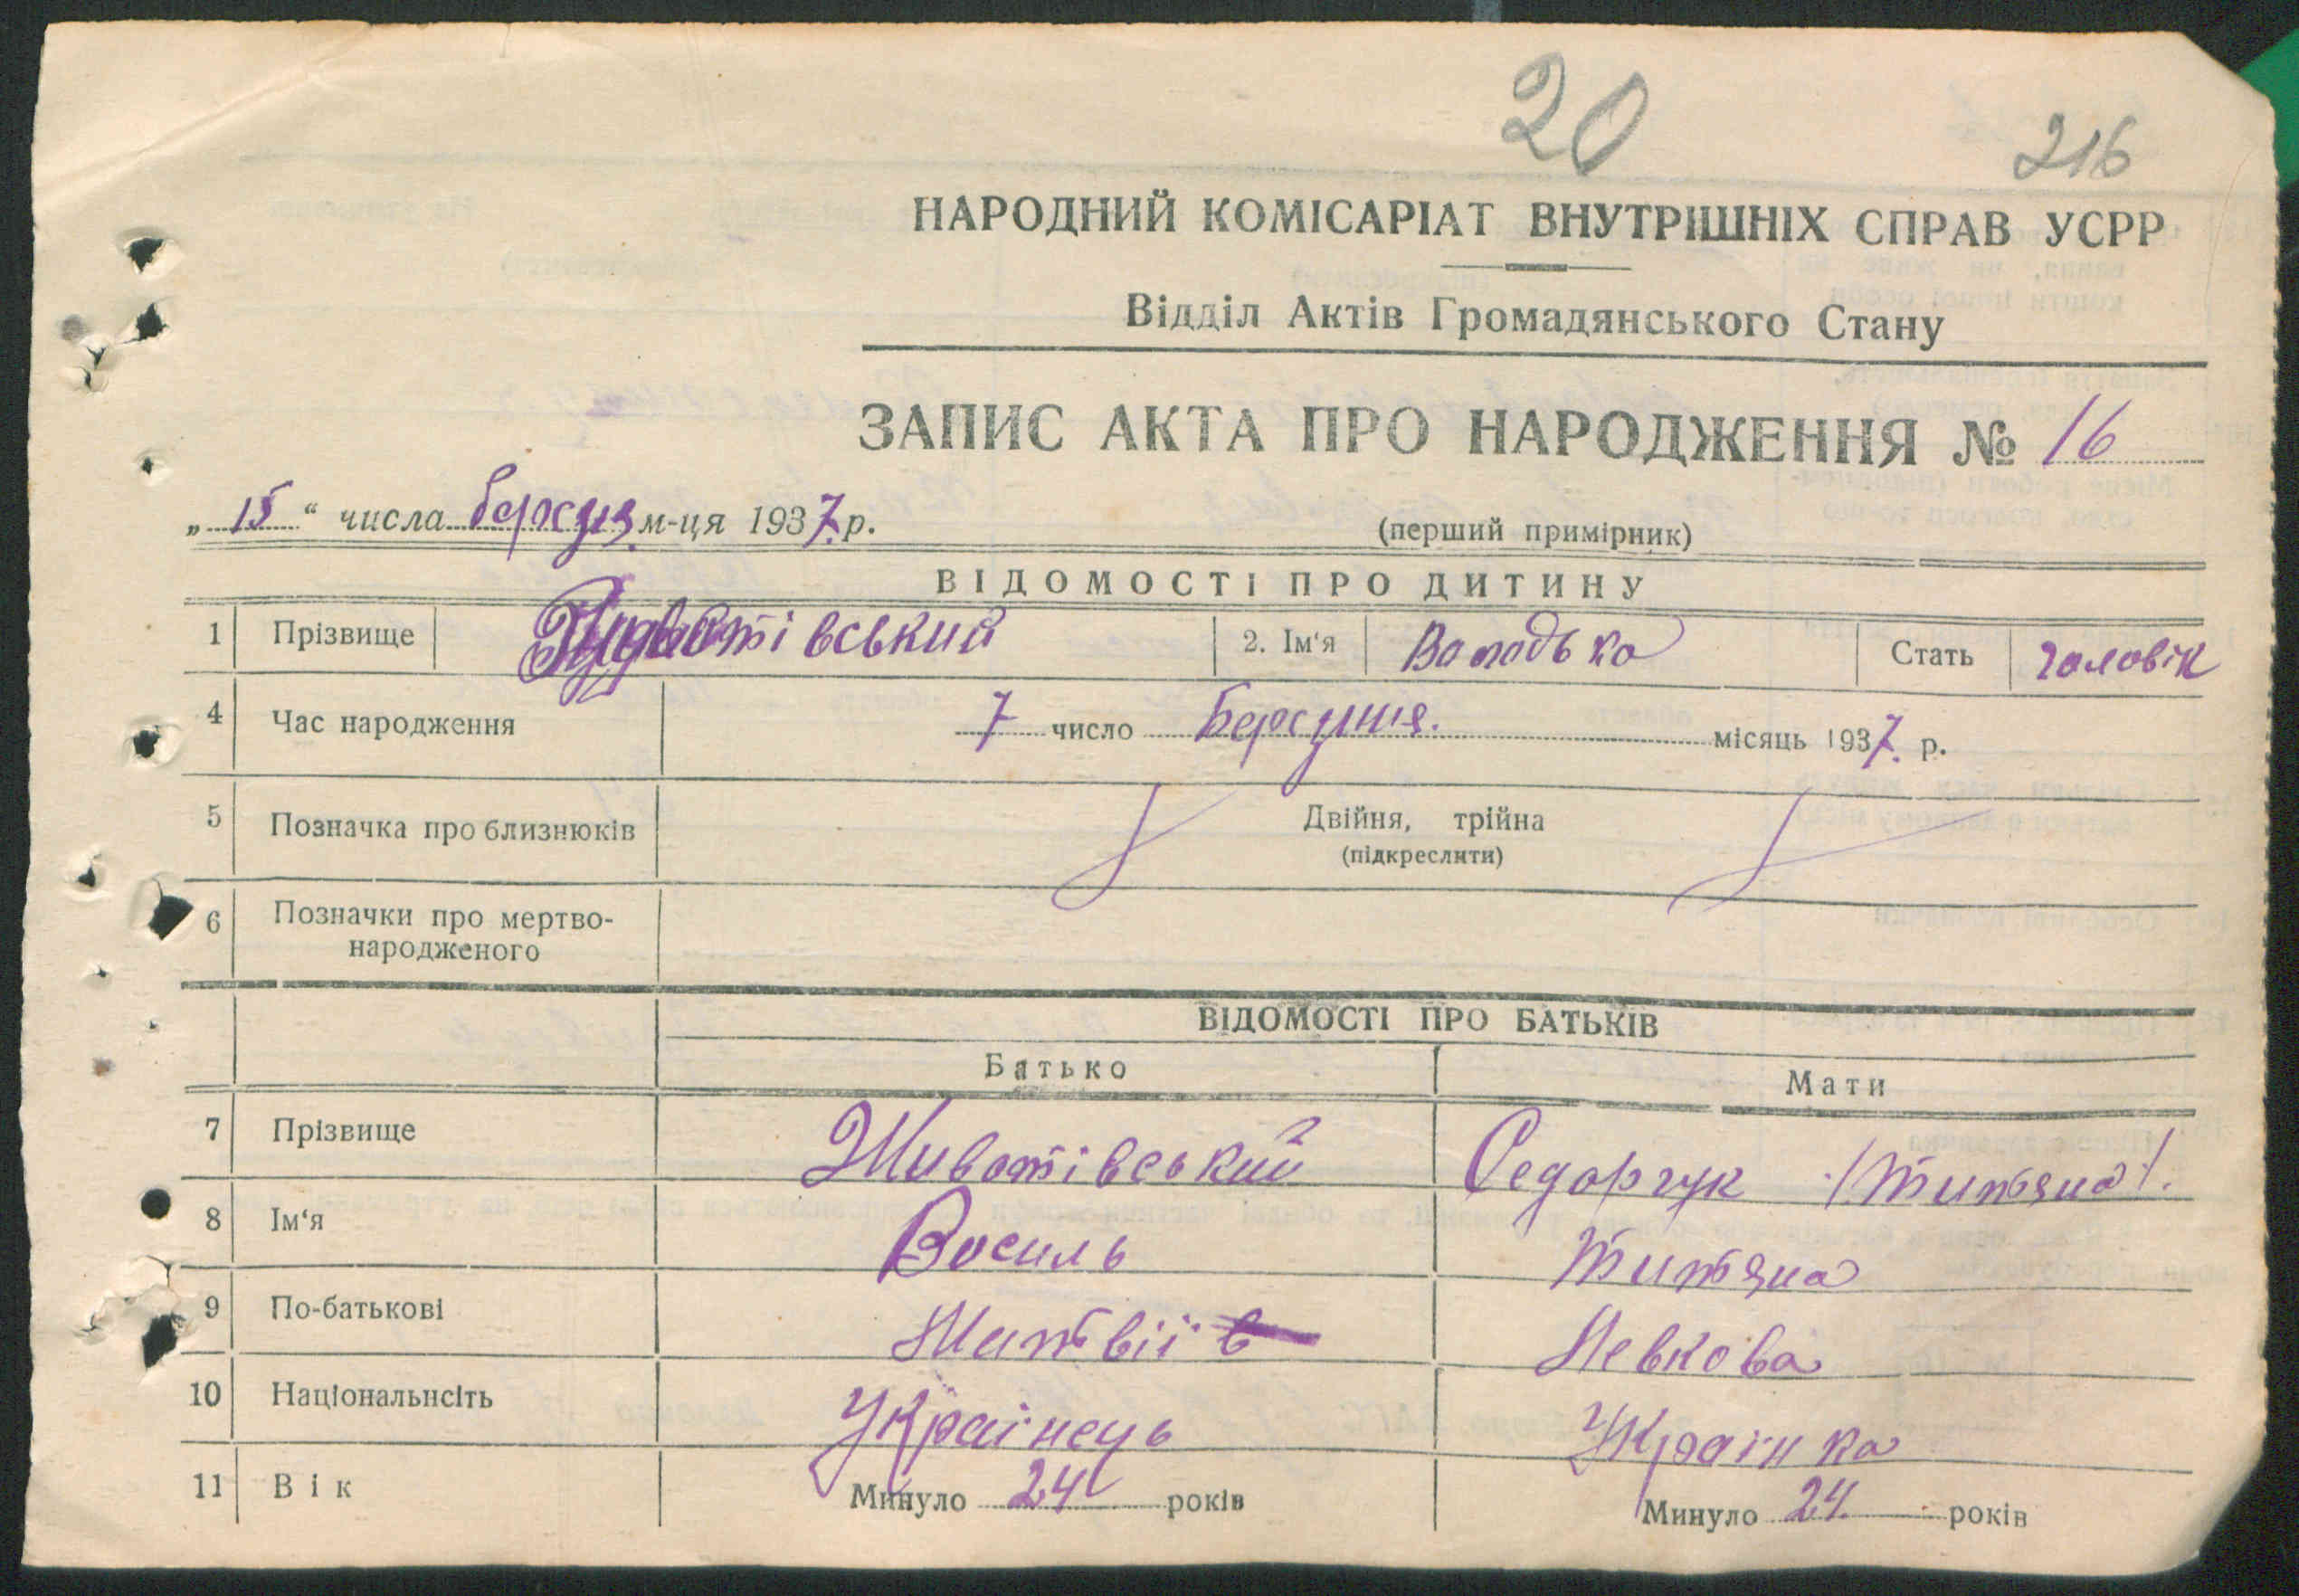 20
216
НАРОДНИЙ КОМІСАРІАТ ВНУТРІШНІХ СПРАВ УСРР
Відділ Актів Громадянського Стану
ЗАПИС АКТА ПРО НАРОДЖЕННЯ № 16
„ 15 “ числа березня м-ця 1937 р.
(перший примірник)
ВІДОМОСТІ ПРО ДИТИНУ
1 Прізвище Животівський 2. Ім'я Володька Стать чоловік
4 Час народження 7 число Березння. місяць 1937. р.
5 Позначка про близнюків Двійня, трійна
(підкреслити)
6 Позначки про мертво-
народженого
ВІДОМОСТІ ПРО БАТЬКІВ
Батько Мати
7 Прізвище Животівський Седорчук /Титяна/.
8 Ім'я Василь Титяна
9 По-батькові Матвіїв Левкова
10 Національнсіть Українець Українка
11 Вік Минуло 24 років Минуло 24. років